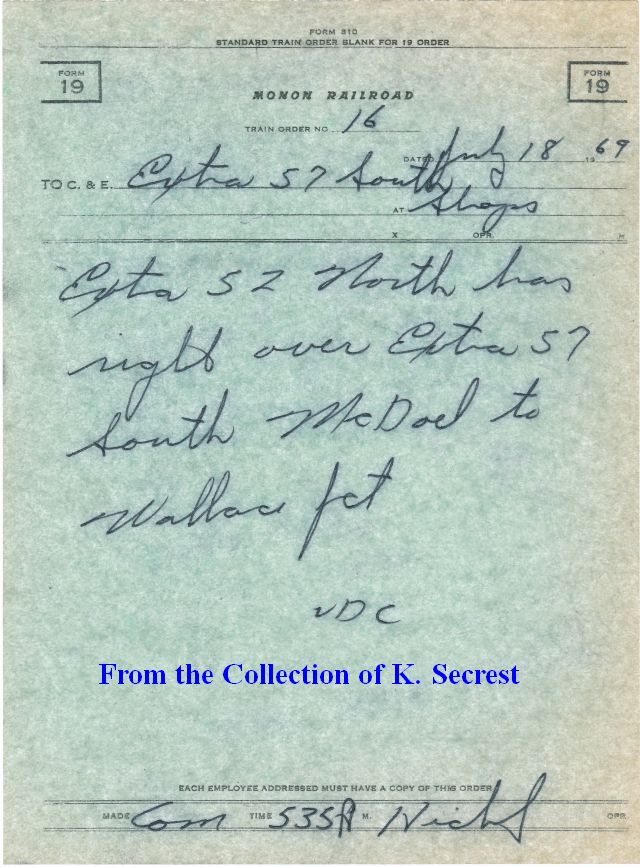 FORM 310
STANDARD TRAIN ORDER BLANK FOR 19 ORDER
FORM 19
FORM 19
MONON RAILROAD
TRAIN ORDER NO. 16
DATED July 18 1969
TO C. & E. Extra 57 South
AT Shops
X OPR. M
Exta 52 North has
right over Extra 57
South McDoel to
Wallace Jct
From the Collection of K. Secrest
EACH EMPLOYEE ADDRESSED MUST HAVE A COPY OF THIS ORDER
MADE Com TIME 535P M. OPR.